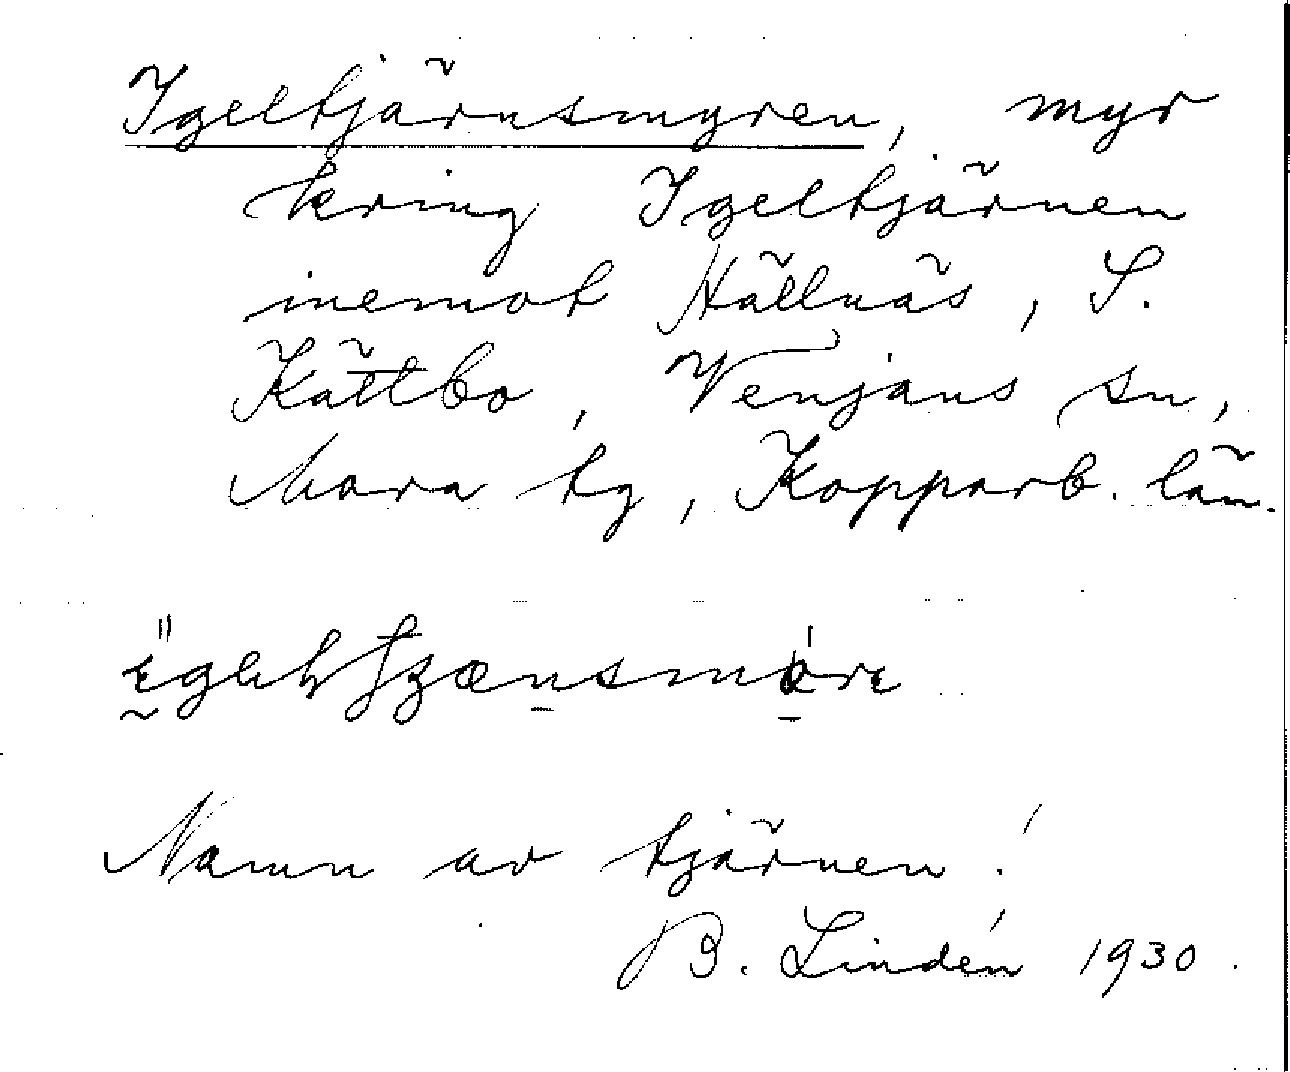 Igeltjärnsmyren, myr
kring Igeltjärnen
inemot Hällnäs, S.
Kättbo, Venjans sn,
Mora tg, Kopparb. län.
Namn av tjärnen!
B. Lindén 1930.